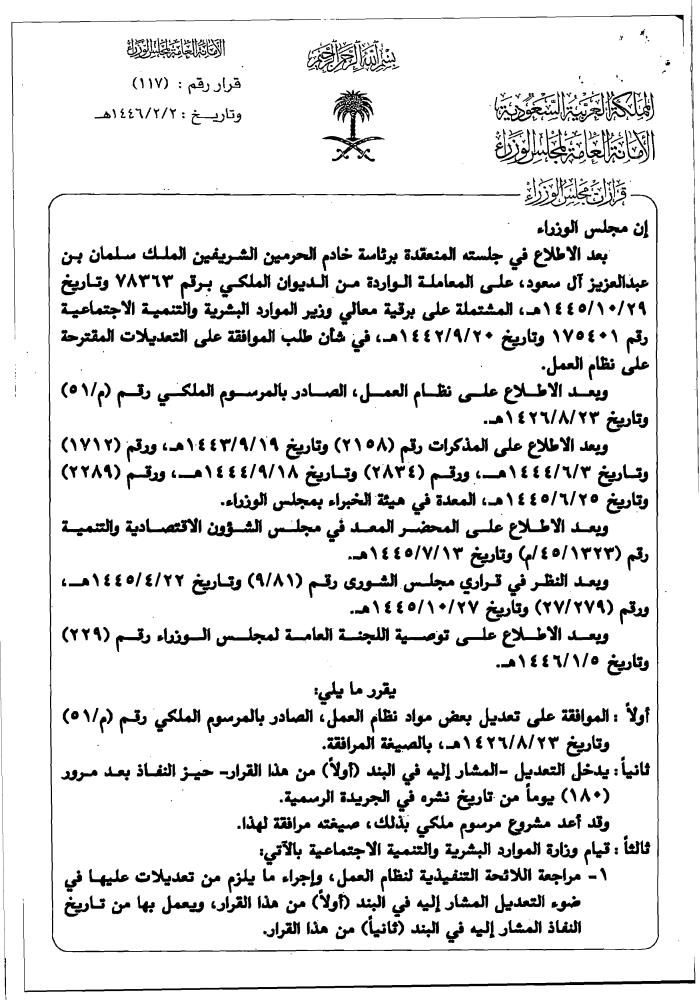 بسم الله الرحمن الرحيم
المملكة العربية السعودية
الأمانة العامة لمجلس الوزراء
الأمانة العامة لمجلس الوزراء
قرار رقم : (١١٧)
وتاريخ : ١٤٤٦/٢/٢هـ
قرارات مجلس الوزراء
إن مجلس الوزراء
بعد الاطلاع في جلسته المنعقدة برئاسة خادم الحرمين الشريفين الملك سلمان بن
عبدالعزيز آل سعود، على المعاملة الواردة من الديوان الملكي برقم ٧٨٣٦٣ وتاريخ
١٤٤٥/١٠/٢٩هـ، المشتملة على برقية معالي وزير الموارد البشرية والتنمية الاجتماعية
رقم ١٧٥٤٠١ وتاريخ ١٤٤٢/٩/٢٠هـ، في شأن طلب الموافقة على التعديلات المقترحة
على نظام العمل.
وبعد الاطلاع على نظام العمل، الصادر بالمرسوم الملكي رقم (م/٥١)
وتاريخ ١٤٢٦/٨/٢٣هـ.
وبعد الاطلاع على المذكرات رقم (٢١٥٨) وتاريخ ١٤٤٣/٩/١٩هـ، ورقم (١٧١٢)
وتاريخ ١٤٤٤/٦/٣هـ، ورقم (٢٨٣٤) وتاريخ ١٤٤٤/٩/١٨هـ، ورقم (٢٢٨٩)
وتاريخ ١٤٤٥/٦/٢٥هـ، المعدة في هيئة الخبراء بمجلس الوزراء.
وبعد الاطلاع على المحضر المعد في مجلس الشؤون الاقتصادية والتنمية
رقم (٤٥/١٣٢٣/م) وتاريخ ١٤٤٥/٧/١٣هـ.
وبعد النظر في قراري مجلس الشورى رقم (٩/٨١) وتاريخ ١٤٤٥/٤/٢٢هـ،
ورقم (٢٧/٢٧٩) وتاريخ ١٤٤٥/١٠/٢٧هـ.
وبعد الاطلاع على توصية اللجنة العامة لمجلس الوزراء رقم (٢٢٩)
وتاريخ ١٤٤٦/١/٥هـ.
يقرر ما يلي:
أولاً : الموافقة على تعديل بعض مواد نظام العمل، الصادر بالمرسوم الملكي رقم (م/٥١)
وتاريخ ١٤٢٦/٨/٢٣هـ، بالصيغة المرافقة.
ثانياً : يدخل التعديل -المشار إليه في البند (أولاً) من هذا القرار- حيز النفاذ بعد مرور
(١٨٠) يوماً من تاريخ نشره في الجريدة الرسمية.
وقد أعد مشروع مرسوم ملكي بذلك، صيغته مرافقة لهذا.
ثالثاً : قيام وزارة الموارد البشرية والتنمية الاجتماعية بالآتي:
١- مراجعة اللائحة التنفيذية لنظام العمل، وإجراء ما يلزم من تعديلات عليها في
ضوء التعديل المشار إليه في البند (أولاً) من هذا القرار، ويعمل بها من تاريخ
النفاذ المشار إليه في البند (ثانياً) من هذا القرار.